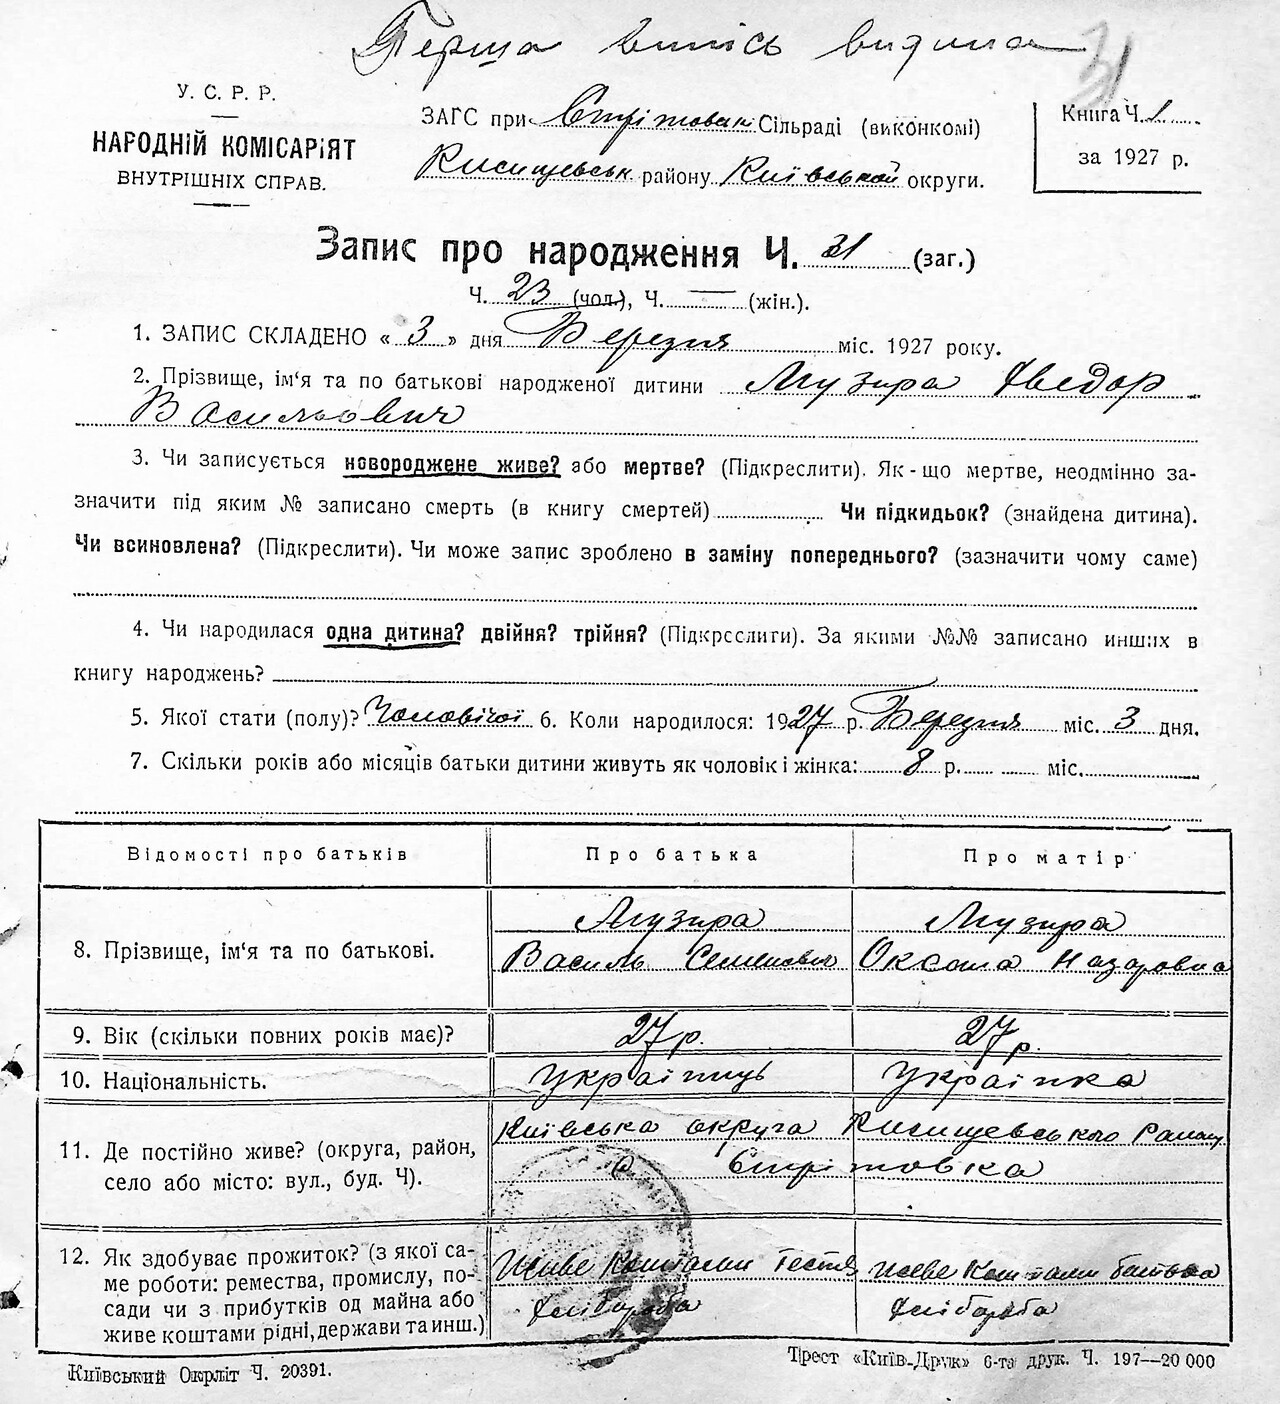 Перша випись видана
31
У. С. Р. Р.
НАРОДНІЙ КОМІСАРІЯТ
ВНУТРІШНІХ СПРАВ.
ЗАГС при Стрітовск Сільраді (виконкомі)
Кисищевськ району Київської округи.
Книга Ч. 1
за 1927 р.
Запис про народження Ч. 31 (заг.)
Ч. 23 (чол.), Ч. — (жін.).
1. ЗАПИС СКЛАДЕНО « 3 » дня Березня міс. 1927 року.
2. Прізвище, ім'я та по батькові народженої дитини Музира Хведор
Васильович
3. Чи записується новороджене живе? або мертве? (Підкреслити). Як-що мертве, неодмінно за-
значити під яким № записано смерть (в книгу смертей) Чи підкидьок? (знайдена дитина).
Чи всиновлена? (Підкреслити). Чи може запис зроблено в заміну попереднього? (зазначити чому саме)
4. Чи народилася одна дитина? двійня? трійня? (Підкреслити). За якими №№ записано инших в
книгу народжень?
5. Якої стати (полу)? Чоловічої 6. Коли народилося: 1927 р. Березня міс. 3 дня.
7. Скільки років або місяців батьки дитини живуть як чоловік і жінка: 8 р. міс.
Відомості про батьків Про батька Про матір
8. Прізвище, ім'я та по батькові.
Музира
Василь Семенович
Музира
Оксана Назаровна
9. Вік (скільки повних років має)? 27 р. 27 р.
10. Національність. Українець Українка
11. Де постійно живе? (округа, район,
село або місто: вул., буд. Ч).
Київська округа Кисищевського Району
с Стрітовка
12. Як здобуває прожиток? (з якої са-
ме роботи: ремества, промислу, по-
сади чи з прибутків од майна або
живе коштами рідні, держави та инш.)
Живе Коштами Тестя
хлібороба
живе Коштами батька
хлібороба
Київський Окрліт Ч. 20391.
Трест «Київ-Друк» 6-та друк. Ч. 197—20 000